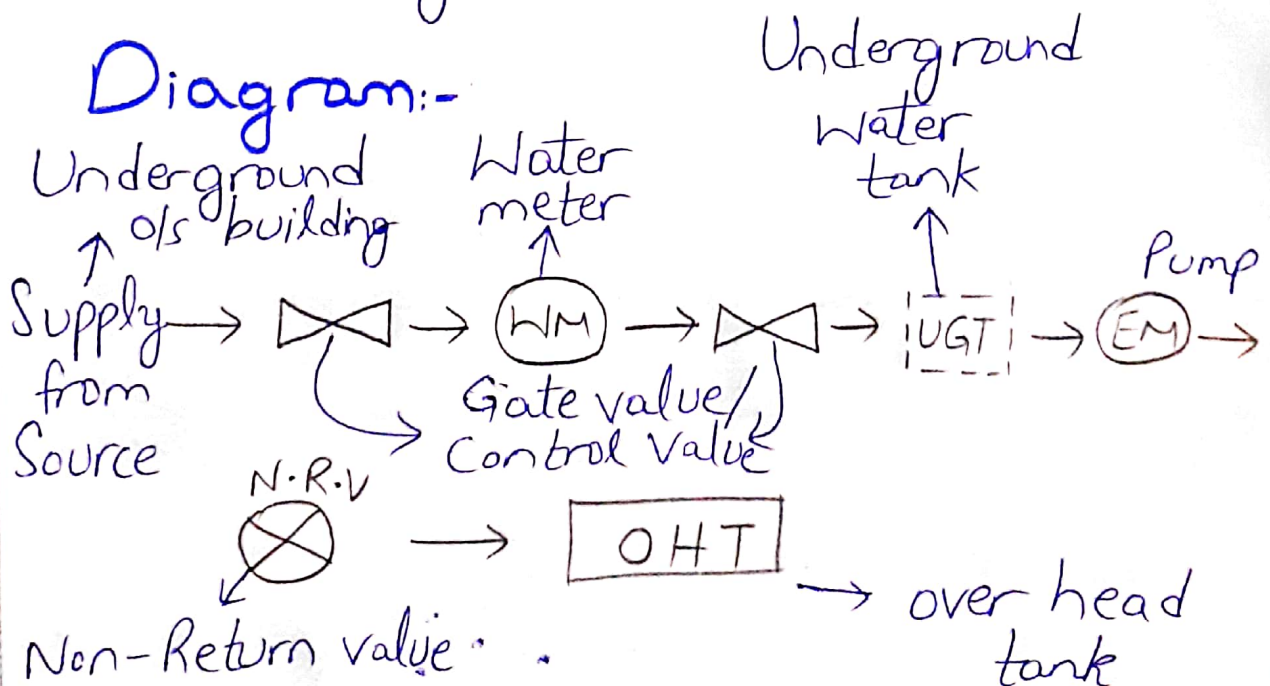 Diagram:-
Underground
o/s building
Water
meter
Underground
Water
tank
Pump
Supply
from
Source
WM
UGT
EM
Gate value/
Control Value
N.R.V
OHT
Non-Return value.
over head
tank